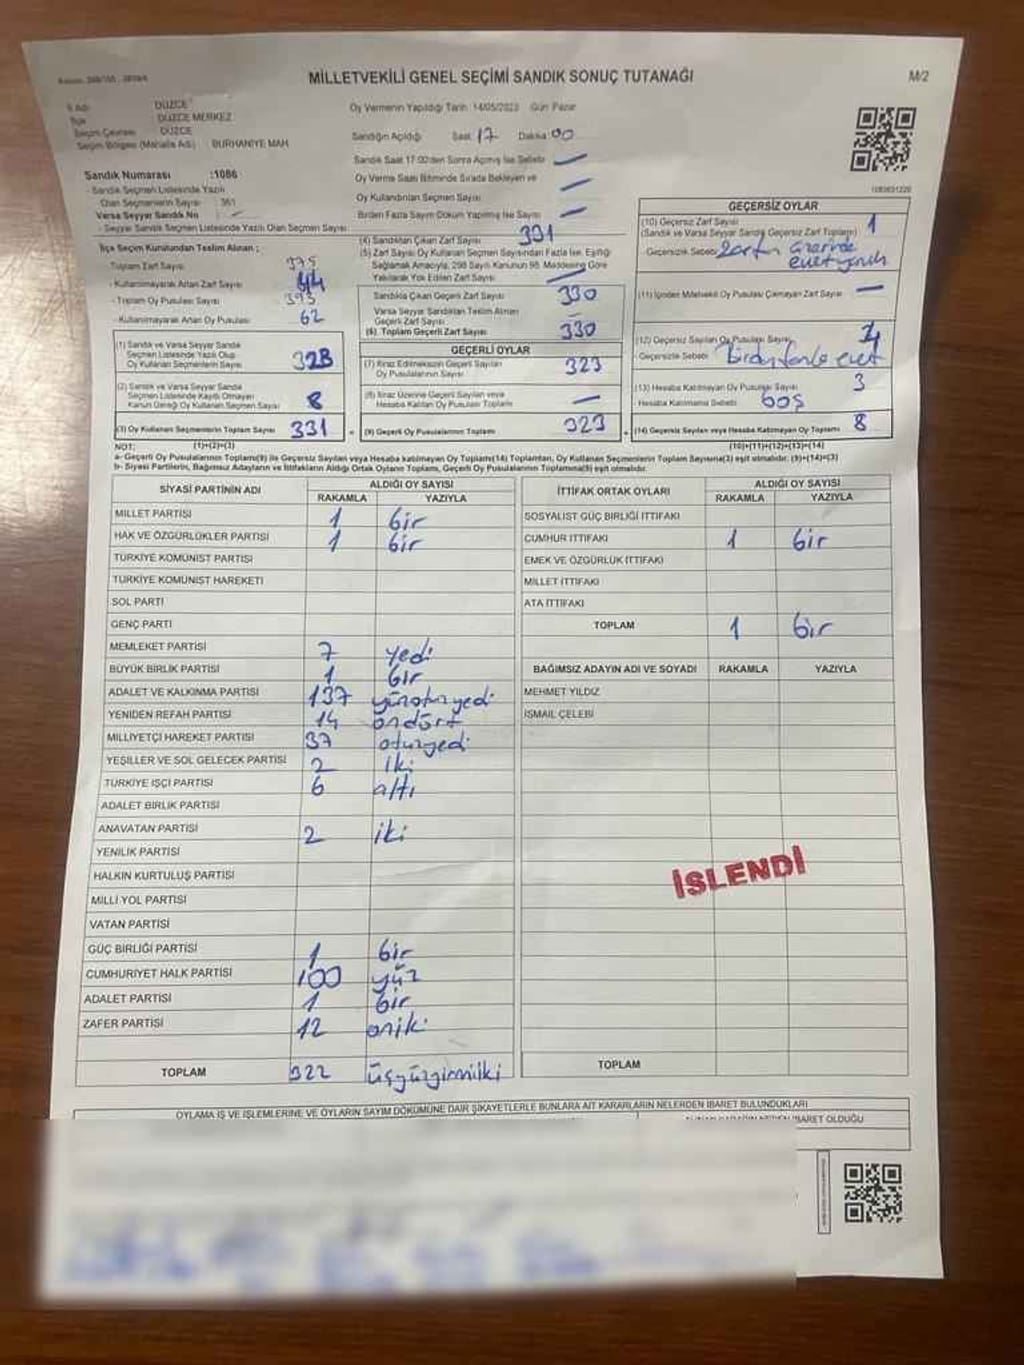 MİLLETVEKİLİ GENEL SEÇİMİ SANDIK SONUÇ TUTANAĞI
M/2
İl Adı DÜZCE
İlçe DÜZCE MERKEZ
Seçim Çevresi DÜZCE
Seçim Bölgesi (Mahalle Adı) BURHANİYE MAH
Oy Vermenin Yapıldığı Tarih 14/05/2023 Gün Pazar
Sandığın Açıldığı Saat 17 Dakika 00
Sandık Saat 17:00'den Sonra Açılmış İse Sebebi —
Oy Verme Saati Bitiminde Sırada Bekleyen ve
Oy Kullandırılan Seçmen Sayısı —
Birden Fazla Sayım Döküm Yapılmış İse Sayısı —
Sandık Numarası :1086
- Sandık Seçmen Listesinde Yazılı
Olan Seçmenlerin Sayısı : 361
Varsa Seyyar Sandık No
- Seyyar Sandık Seçmen Listesinde Yazılı Olan Seçmen Sayısı
İlçe Seçim Kurulundan Teslim Alınan ;
Toplam Zarf Sayısı 375
- Kullanılmayarak Artan Zarf Sayısı 44
- Toplam Oy Pusulası Sayısı 393
- Kullanılmayarak Artan Oy Pusulası 62
(1) Sandık ve Varsa Seyyar Sandık
Seçmen Listesinde Yazılı Olup
Oy Kullanan Seçmenlerin Sayısı
(2) Sandık ve Varsa Seyyar Sandık
Seçmen Listesinde Kayıtlı Olmayan
Kanun Gereği Oy Kullanan Seçmen Sayısı 8
(3) Oy Kullanan Seçmenlerin Toplam Sayısı 331
(1)+(2)=(3)
(4) Sandıktan Çıkan Zarf Sayısı 331
(5) Zarf Sayısı Oy Kullanan Seçmen Sayısından Fazla İse, Eşitliği
Sağlamak Amacıyla, 298 Sayılı Kanunun 98. Maddesine Göre
Yakılarak Yok Edilen Zarf Sayısı —
Sandıkta Çıkan Geçerli Zarf Sayısı 330
Varsa Seyyar Sandıktan Teslim Alınan
Geçerli Zarf Sayısı —
(6) Toplam Geçerli Zarf Sayısı 330
GEÇERLİ OYLAR
(7) İtiraz Edilmeksizin Geçerli Sayılan
Oy Pusulalarının Sayısı 323
(8) İtiraz Üzerine Geçerli Sayılan veya
Hesaba Katılan Oy Pusulası Toplamı —
(9) Geçerli Oy Pusulalarının Toplamı 323
1083631220
GEÇERSİZ OYLAR
(10) Geçersiz Zarf Sayısı 1
(Sandık ve Varsa Seyyar Sandık Geçersiz Zarf Toplamı)
Geçersizlik Sebebi Zarfın üzerinde
evet
(11) İçinden Milletvekili Oy Pusulası Çıkmayan Zarf Sayısı —
(12) Geçersiz Sayılan Oy Pusulası Sayısı 4
Geçersizlik Sebebi Birden fazla evet
(13) Hesaba Katılmayan Oy Pusulası Sayısı 3
Hesaba Katılmama Sebebi boş
(14) Geçersiz Sayılan veya Hesaba Katılmayan Oy Toplamı 8
(10)+(11)+(12)+(13)=(14)
NOT:
a- Geçerli Oy Pusulalarının Toplamı(9) ile Geçersiz Sayılan veya Hesaba katılmayan Oy Toplamı(14) Toplamları, Oy Kullanan Seçmenlerin Toplam Sayısına(3) eşit olmalıdır. (9)+(14)=(3)
b- Siyasi Partilerin, Bağımsız Adayların ve İttifakların Aldığı Ortak Oyların Toplamı, Geçerli Oy Pusulalarının Toplamına(9) eşit olmalıdır.
SİYASİ PARTİNİN ADI ALDIĞI OY SAYISI
RAKAMLA YAZIYLA
MİLLET PARTİSİ 1 bir
HAK VE ÖZGÜRLÜKLER PARTİSİ 1 bir
TÜRKİYE KOMÜNİST PARTİSİ
TÜRKİYE KOMÜNİST HAREKETİ
SOL PARTİ
GENÇ PARTİ
MEMLEKET PARTİSİ 7 yedi
BÜYÜK BİRLİK PARTİSİ 1 bir
ADALET VE KALKINMA PARTİSİ 137 yüzotuzyedi
YENİDEN REFAH PARTİSİ 14 ondört
MİLLİYETÇİ HAREKET PARTİSİ 37 otuzyedi
YEŞİLLER VE SOL GELECEK PARTİSİ 2 iki
TÜRKİYE İŞÇİ PARTİSİ 6 altı
ADALET BİRLİK PARTİSİ
ANAVATAN PARTİSİ 2 iki
YENİLİK PARTİSİ
HALKIN KURTULUŞ PARTİSİ
MİLLİ YOL PARTİSİ
VATAN PARTİSİ
GÜÇ BİRLİĞİ PARTİSİ 1 bir
CUMHURİYET HALK PARTİSİ 100 yüz
ADALET PARTİSİ 1 bir
ZAFER PARTİSİ 12 oniki
TOPLAM 322 üçyüzyirmiiki
İTTİFAK ORTAK OYLARI ALDIĞI OY SAYISI
RAKAMLA YAZIYLA
SOSYALİST GÜÇ BİRLİĞİ İTTİFAKI
CUMHUR İTTİFAKI 1 bir
EMEK VE ÖZGÜRLÜK İTTİFAKI
MİLLET İTTİFAKI
ATA İTTİFAKI
TOPLAM 1 bir
BAĞIMSIZ ADAYIN ADI VE SOYADI RAKAMLA YAZIYLA
MEHMET YILDIZ
İSMAİL ÇELEBİ
İŞLENDİ
TOPLAM
OYLAMA İŞ VE İŞLEMLERİNE VE OYLARIN SAYIM DÖKÜMÜNE DAİR ŞİKAYETLERLE BUNLARA AİT KARARLARIN NELERDEN İBARET BULUNDUKLARI
İBARET OLDUĞU